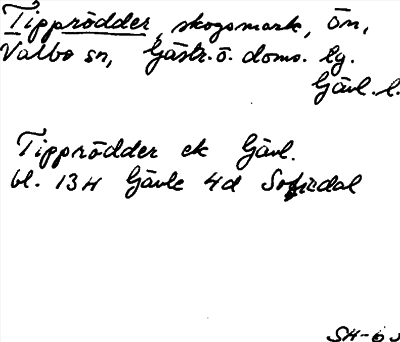 Tipprödder, skogsmark, Ön,
Valbo sn, Gästr. ö. doms. lg.
Gävl. l.
Tipprödder ek Gävl.
bl. 13H Gävle 4d Sofiedal